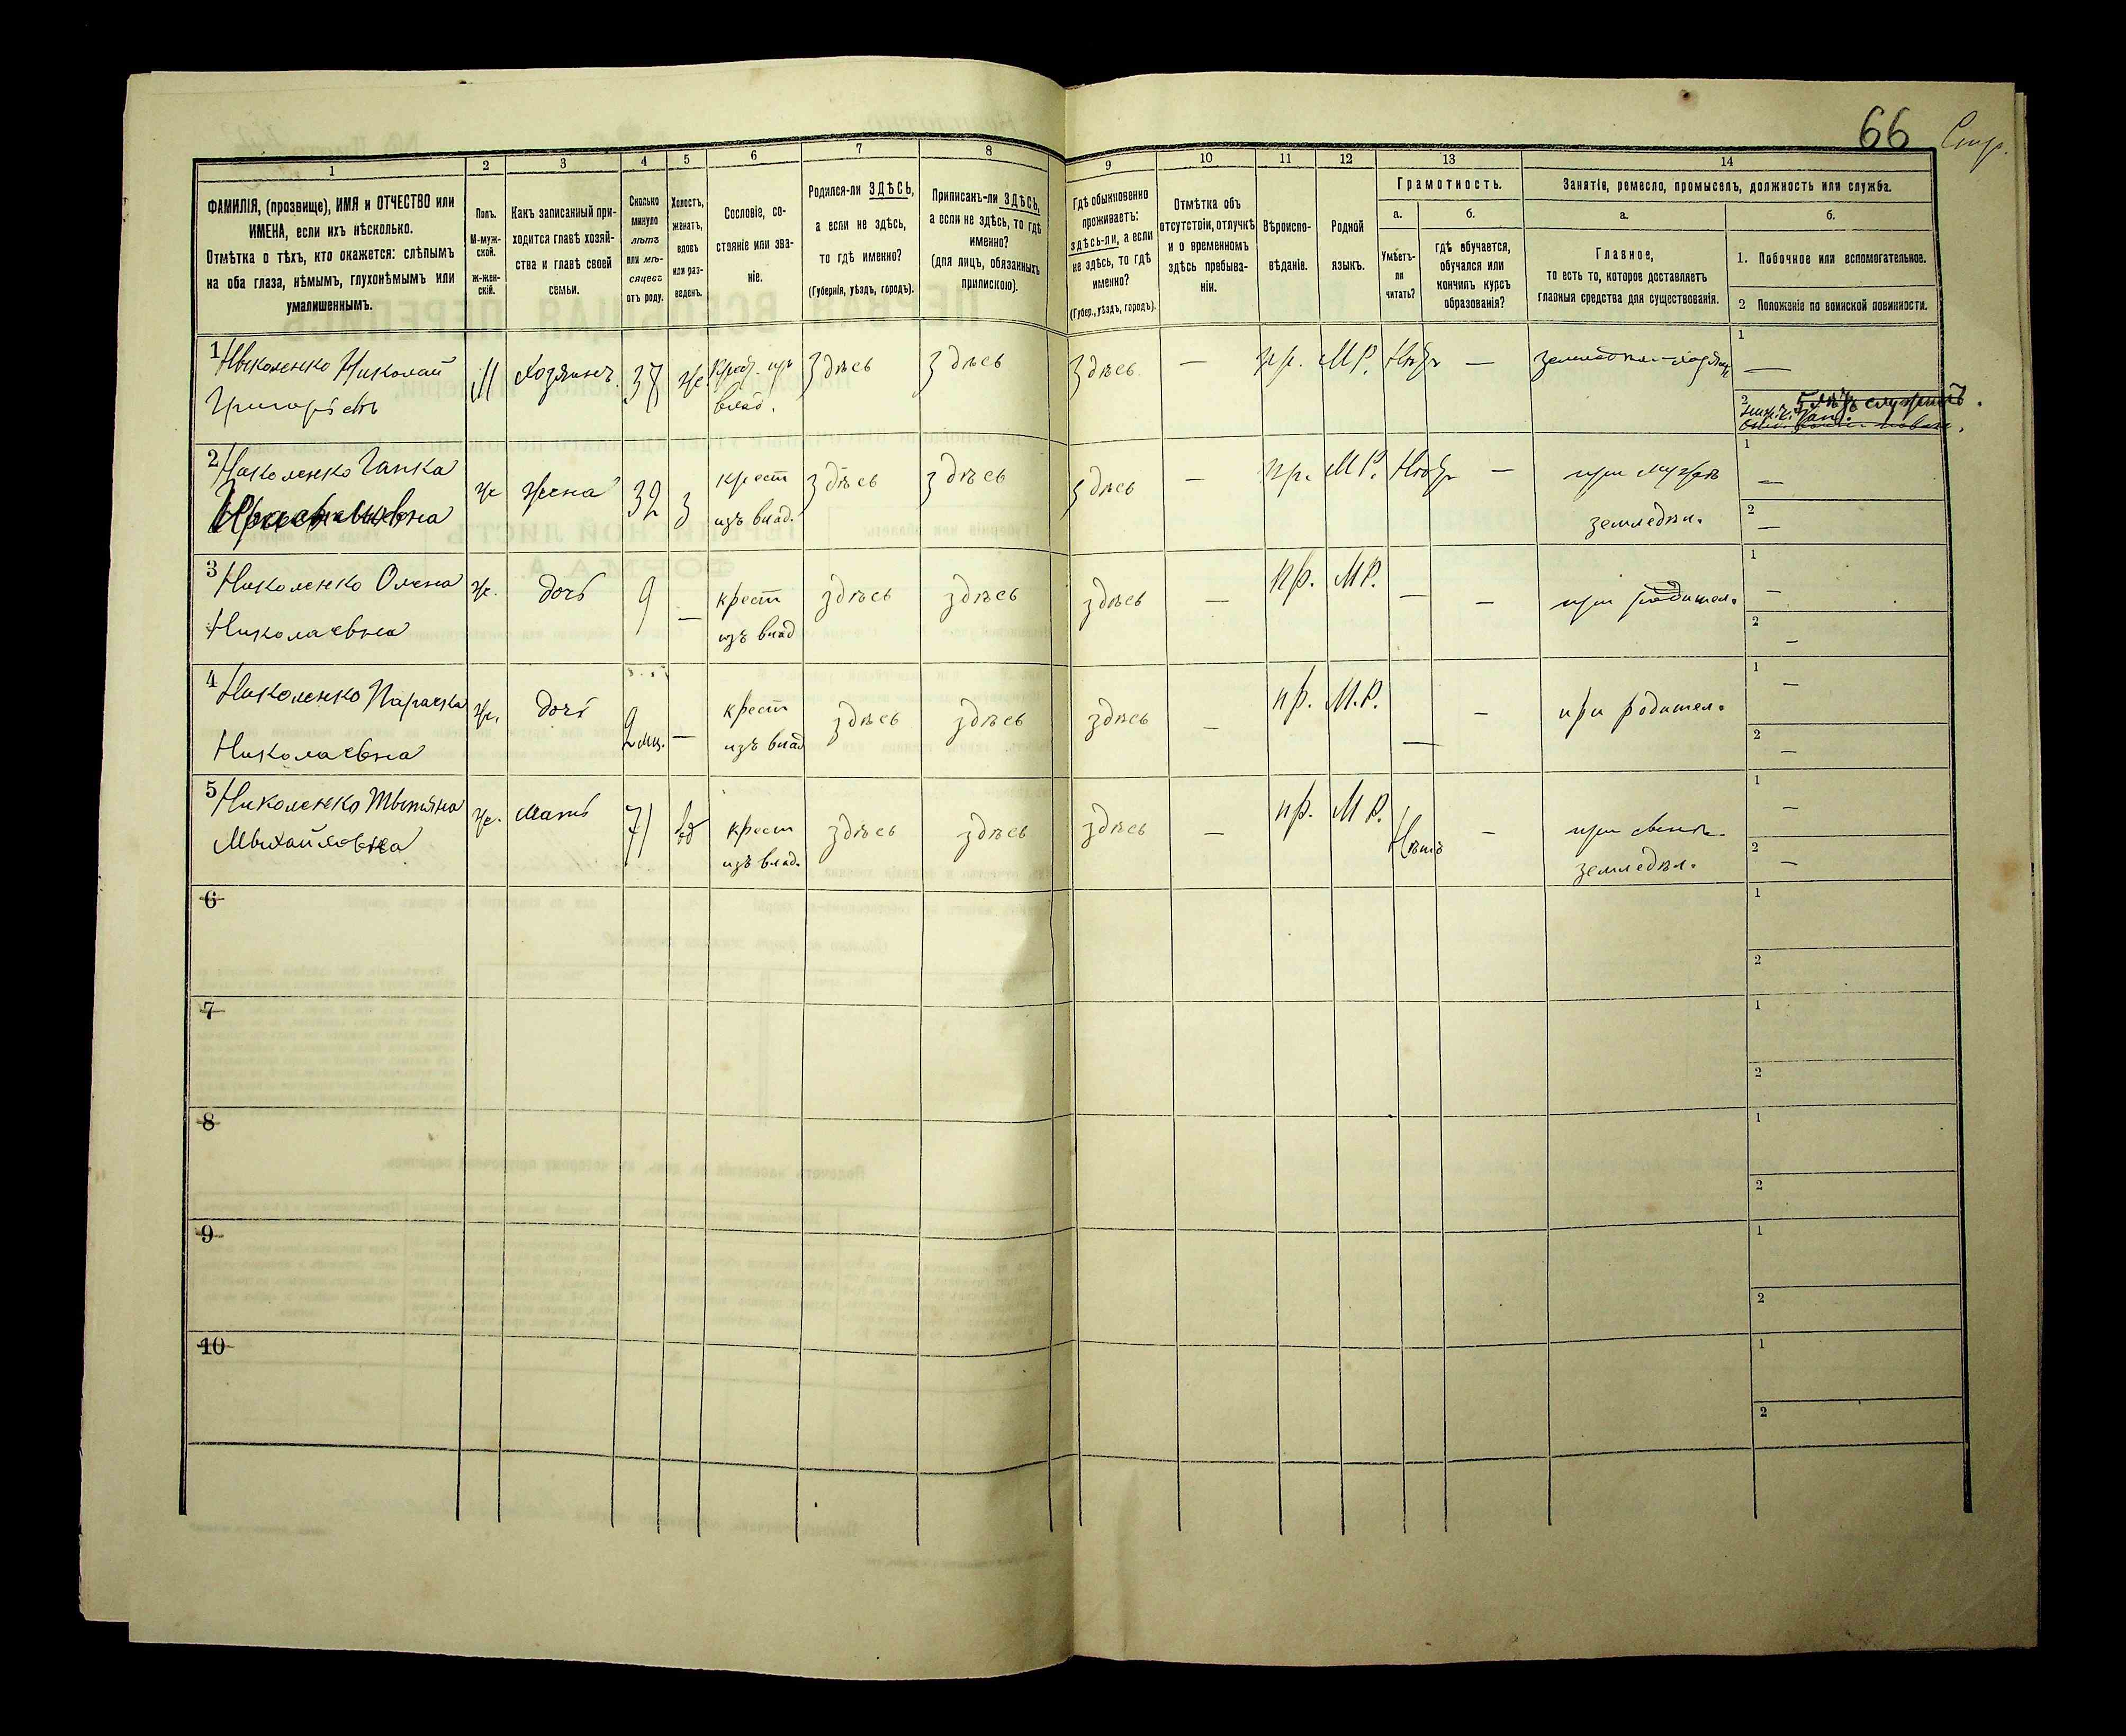 66 Стр.
1 2 3 4 5 6 7 8 9 10 11 12 13 14
ФАМИЛІЯ, (прозвище), ИМЯ и ОТЧЕСТВО или
ИМЕНА, если ихъ нѣсколько.
Отмѣтка о тѣхъ, кто окажется: слѣпымъ
на оба глаза, нѣмымъ, глухонѣмымъ или
умалишеннымъ.
Полъ.
М-муж-
ской.
Ж-жен-
скій.
Какъ записанный при-
ходится главѣ хозяй-
ства и главѣ своей
семьи.
Сколько
минуло
лѣтъ
или мѣ-
сяцевъ
отъ роду.
Холостъ,
женатъ,
вдовъ
или раз-
веденъ.
Сословіе, со-
стояніе или зва-
ніе.
Родился-ли ЗДѢСЬ,
а если не здѣсь,
то гдѣ именно?
(Губернія, уѣздъ, городъ).
Приписанъ-ли ЗДѢСЬ,
а если не здѣсь, то гдѣ
именно?
(для лицъ, обязанныхъ
припискою).
Гдѣ обыкновенно
проживаетъ:
здѣсь-ли, а если
не здѣсь, то гдѣ
именно?
(Губер., уѣздъ, городъ).
Отмѣтка объ
отсутствіи, отлучкѣ
и о временномъ
здѣсь пребыва-
ніи.
Вѣроиспо-
вѣданіе.
Родной
языкъ.
Грамотность.
а.
Умѣетъ-
ли
читать?
б.
гдѣ обучается,
обучался или
кончилъ курсъ
образованія?
Занятія, ремесло, промыселъ, должность или служба.
а.
Главное,
то есть то, которое доставляетъ
главныя средства для существованія.
б.
1. Побочное или вспомогательное.
2 Положеніе по воинской повинности.
1 Николенко Николай М Хозяинъ. 37 ж. крест. изъ здѣсь здѣсь здѣсь — пр. М Р. Нѣтъ — 1 —
Григорьевъ влад. 2
2 Николенко Ганка ж жена 32 з крест здѣсь здѣсь здѣсь — пр. М Р. Нѣтъ — при мужѣ 1 —
изъ влад. земледѣл. 2 —
3 Николенко Олена ж. дочь 9 — крест здѣсь здѣсь здѣсь — пр. М Р. — — при родител. 1 —
Николаевна изъ влад 2 —
4 Николенко Параска ж. дочь 2 мц. — крест здѣсь здѣсь здѣсь — пр. М.Р. — — при родител. 1 —
Николаевна изъ влад 2 —
5 Николенко Тетяна ж. мать 71 вд крест здѣсь здѣсь здѣсь — пр. М Р. Нѣтъ — при сынѣ 1 —
Михайловна изъ влад. земледѣл. 2 —
6 1
2
7 1
2
8 1
2
9 1
2
10 1
2